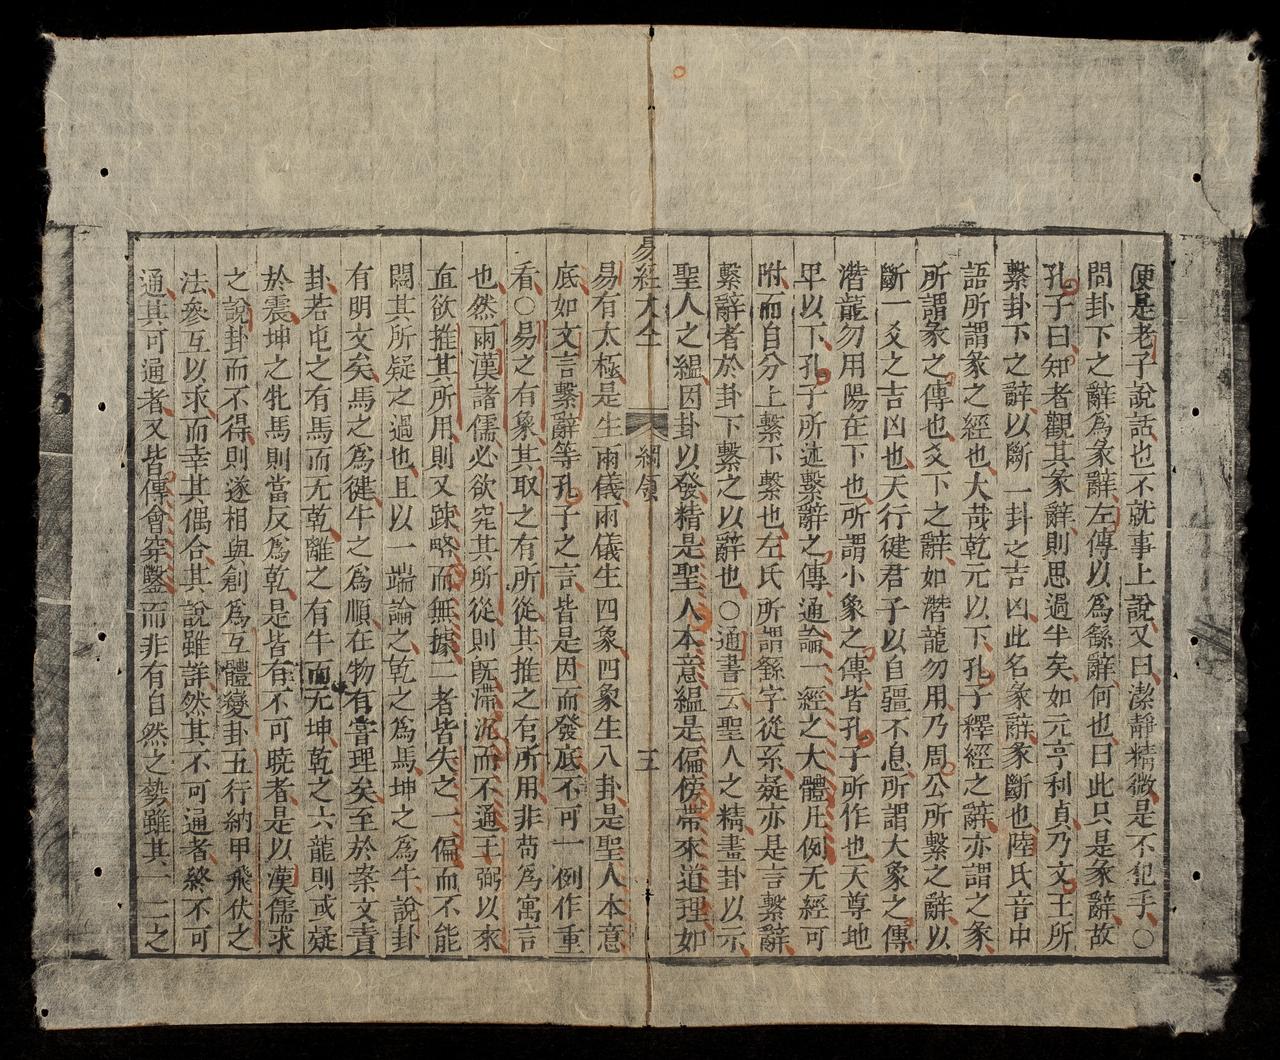 便是老子說話也不就事上說又曰潔靜精微是不犯手○
問卦下之辭為彖辭左傳以為繇辭何也曰此只是彖辭故
孔子曰知者觀其彖辭則思過半矣如元亨利貞乃文王所
繫卦下之辭以斷一卦之吉凶此名彖辭彖斷也陸氏音中
語所謂彖之經也大哉乾元以下孔子釋經之辭亦謂之彖
所謂彖之傳也爻下之辭如潛龍勿用乃周公所繫之辭以
斷一爻之吉凶也天行健君子以自彊不息所謂大象之傳
潛龍勿用陽在下也所謂小象之傳皆孔子所作也天尊地
卑以下孔子所述繫辭之傳通論一經之大體凡例无經可
附而自分上繫下繫也左氏所謂繇字從系疑亦是言繫辭
繫辭者於卦下繫之以辭也○通書云聖人之精畫卦以示
聖人之縕因卦以發精是聖人本意縕是偏傍帶來道理如
易經大全 綱領 三
易有太極是生兩儀兩儀生四象四象生八卦是聖人本意
底如文言繫辭等孔子之言皆是因而發底不可一例作重
看○易之有象其取之有所從其推之有所用非苟為寓言
也然兩漢諸儒必欲究其所從則旣滯泥而不通王弼以來
直欲推其所用則又疎略而無據二者皆失之一偏而不能
闕其所疑之過也且以一端論之乾之為馬坤之為牛說卦
有明文矣馬之為健牛之為順在物有常理矣至於案文責
卦若屯之有馬而无乾離之有牛而无坤乾之六龍則或疑
於震坤之牝馬則當反為乾是皆有不可曉者是以漢儒求
之說卦而不得則遂相與創為互體變卦五行納甲飛伏之
法參互以求而幸其偶合其說雖詳然其不可通者終不可
通其可通者又皆傅會穿鑿而非有自然之勢雖其一二之